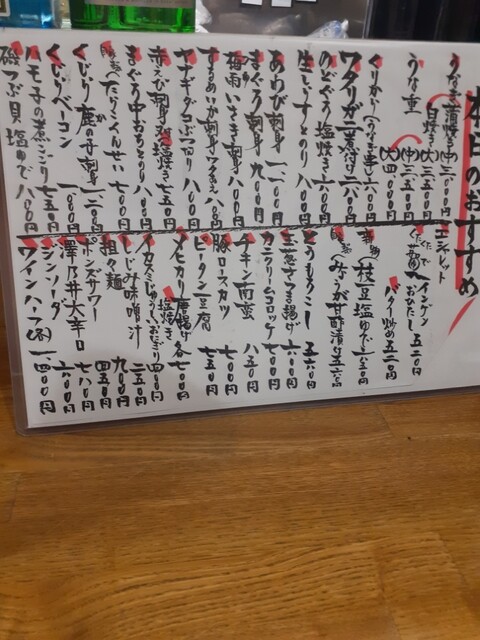 本日のおすすめ!
うなぎ蒲焼き(中)三〇〇〇円
白焼き(大)三五〇〇円
うな重(中)三五〇〇円
(大)四〇〇〇円
くりから(うなぎ串)六〇〇円
ワタリガニ煮付け
のどぐろ塩焼き
生しらすとのり 八〇〇円
あわび刺身
まぐろ刺身 九〇〇円
梅雨いさき刺身 八〇〇円
するめいか刺身
ヤナギダコぶつ切り 八〇〇円
赤えび刺身 塩焼き 七五〇円
まぐろ中おちとのり 八〇〇円
たらこくんせい 七〇〇円
くじり鹿の子刺身
くじらベーコン
ハモ子の煮こごり 七五〇円
磯つぶ貝塩ゆで 八〇〇円
エシャレット
インゲン
おひたし 五二〇円
バタ炒め 五二〇円
枝豆塩ゆで
みょうが甘酢漬け
とうもろこし 五六〇円
生さつま揚げ 六〇〇円
カニクリームコロッケ 七〇〇円
チキン南蛮 八五〇円
豚ロースカツ
ピータン豆腐 七五〇円
メヒカリ唐揚げ 塩焼き 各七〇〇円
イカスミじゅうしいおにぎり 四〇〇円
しじみ味噌汁 二五〇円
担々麺 九〇〇円
ポンズサワー 四五〇円
澤乃井大辛口 七八〇円
ジンソーダ 六〇〇円
ワインハーフ(赤) 一四〇〇円